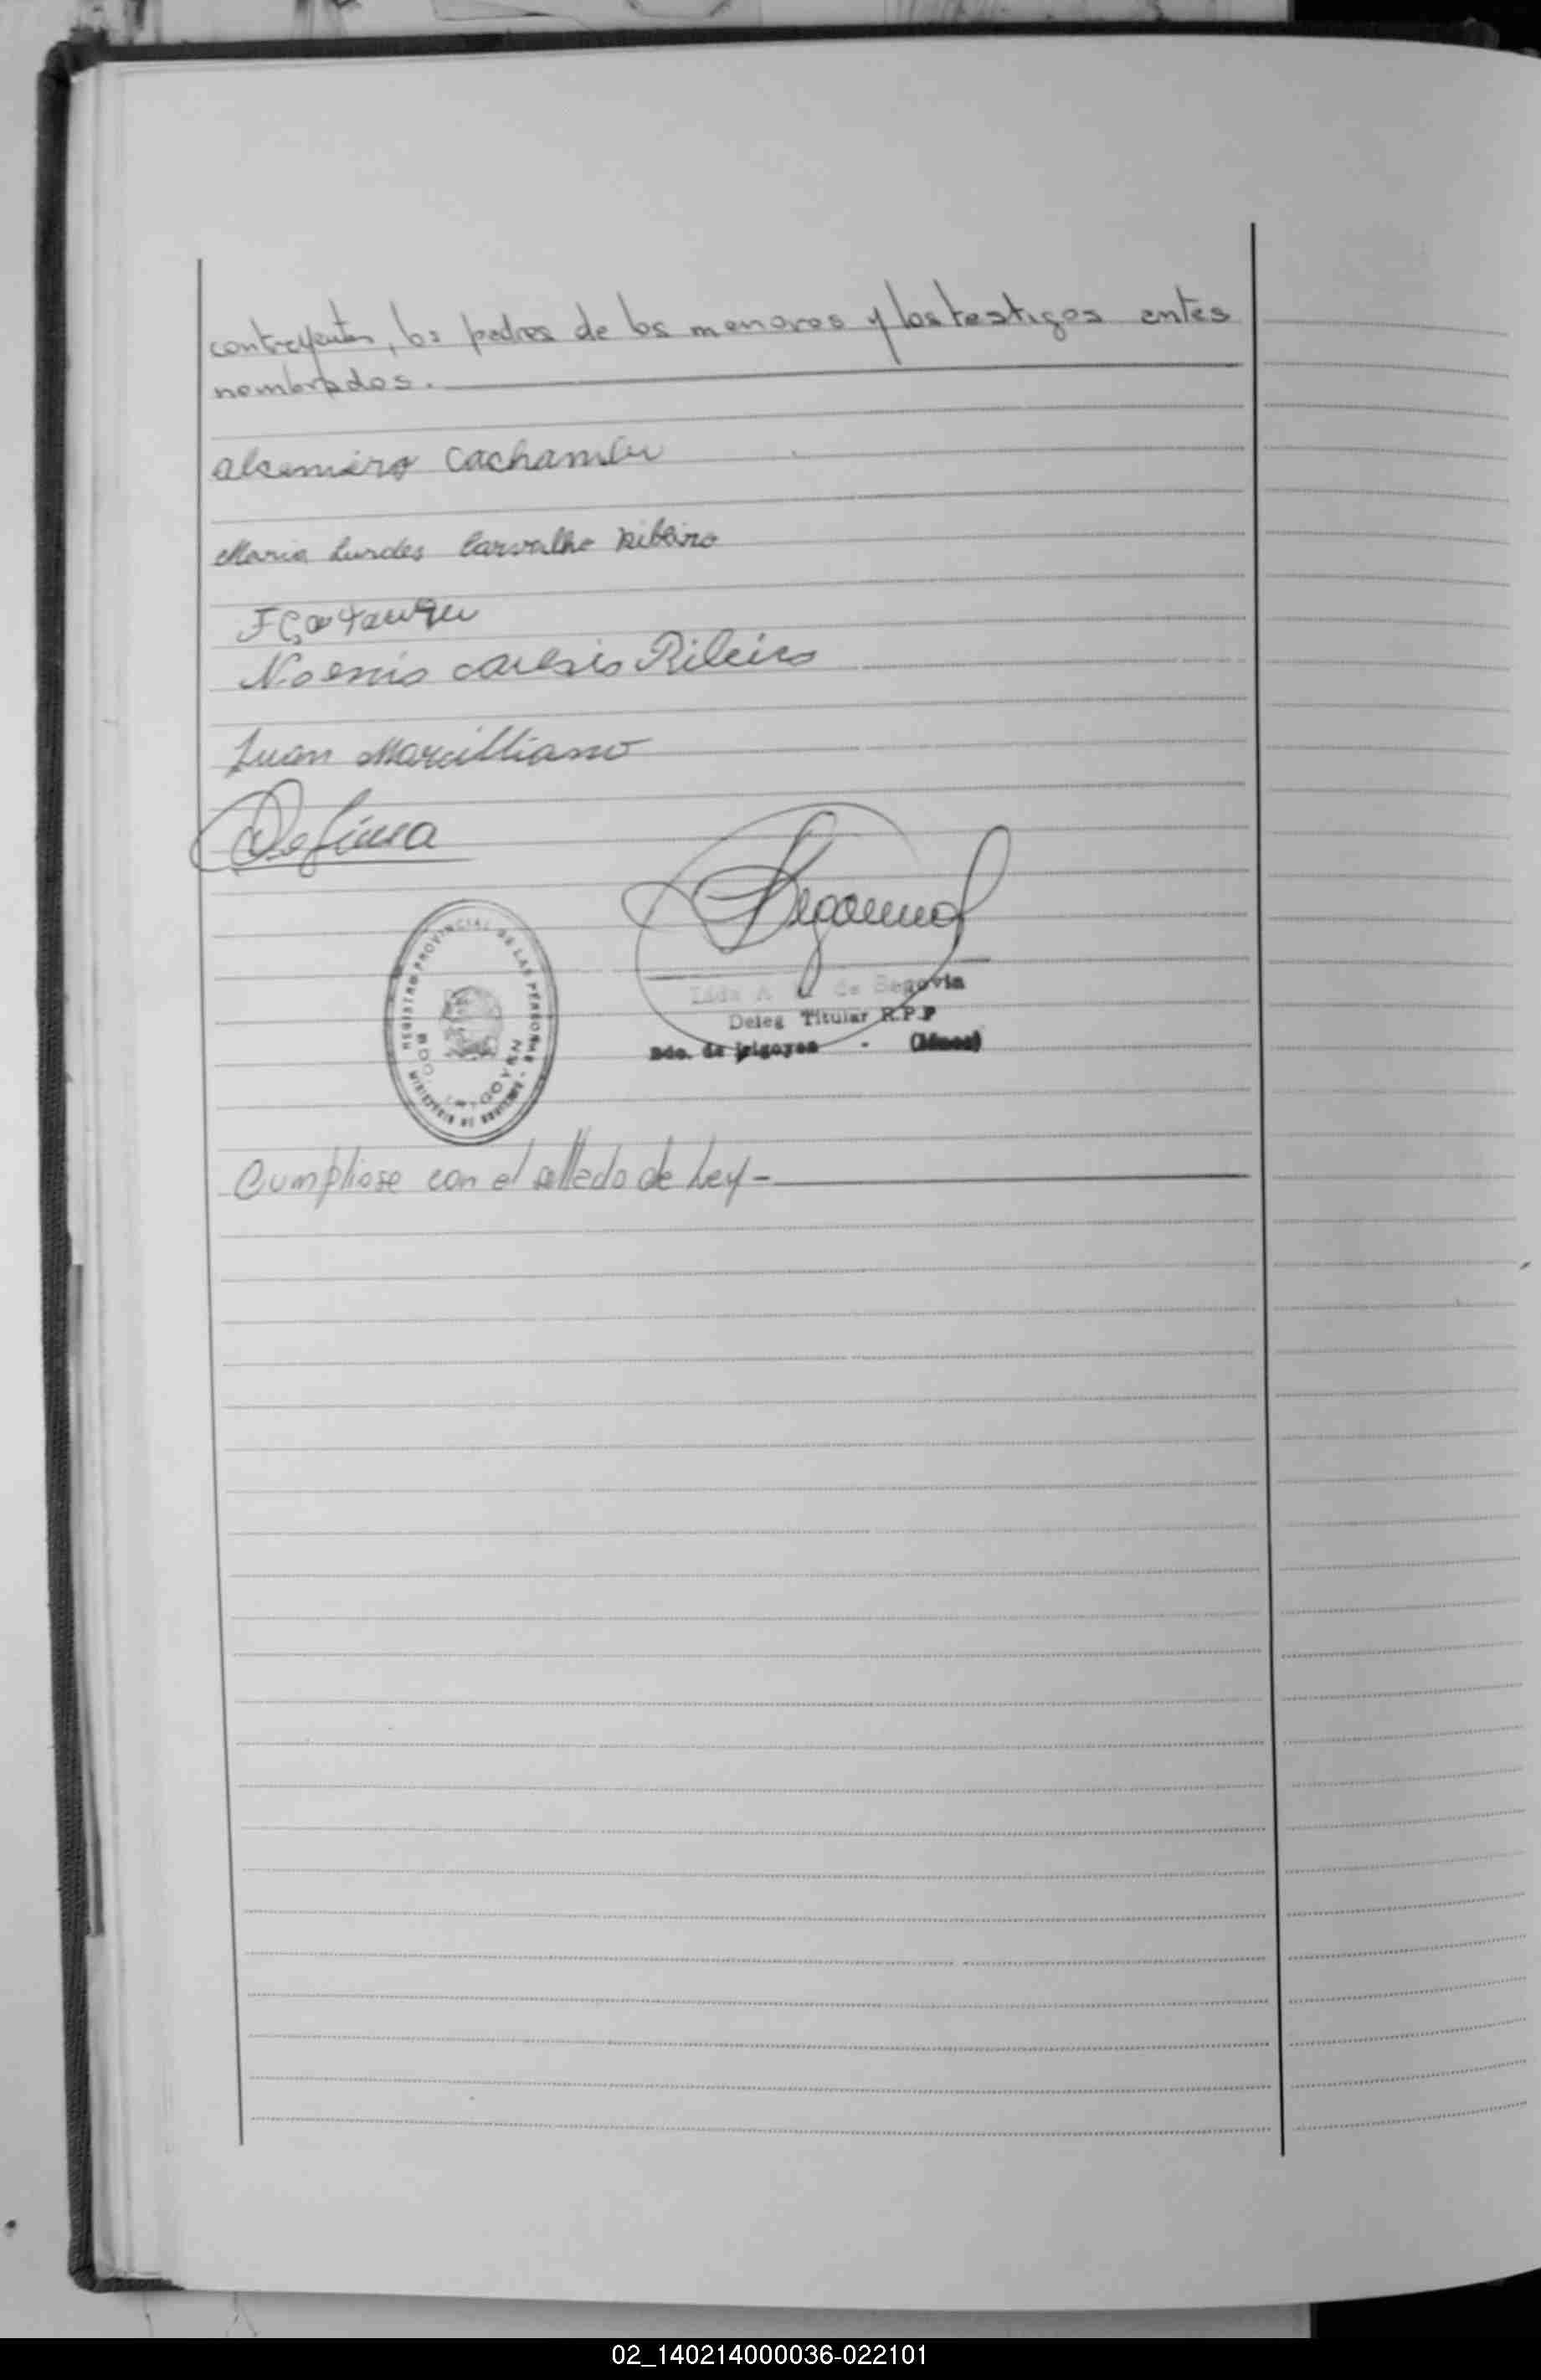 contrayentes, los padres de los menores y los testigos antes
nombrados.
alcemiro Cachambu
Maria Lurdes Carvalho Ribeiro
Juan Marcilliano
REGISTRO PROVINCIAL DE LAS PERSONAS
MINISTERIO DE
IRIGOYEN
Lida A de Segovia
Deleg Titular R.P.P
Bdo. de Irigoyen - (Mnes)
Cumpliose con el sellado de Ley-
02_140214000036-022101